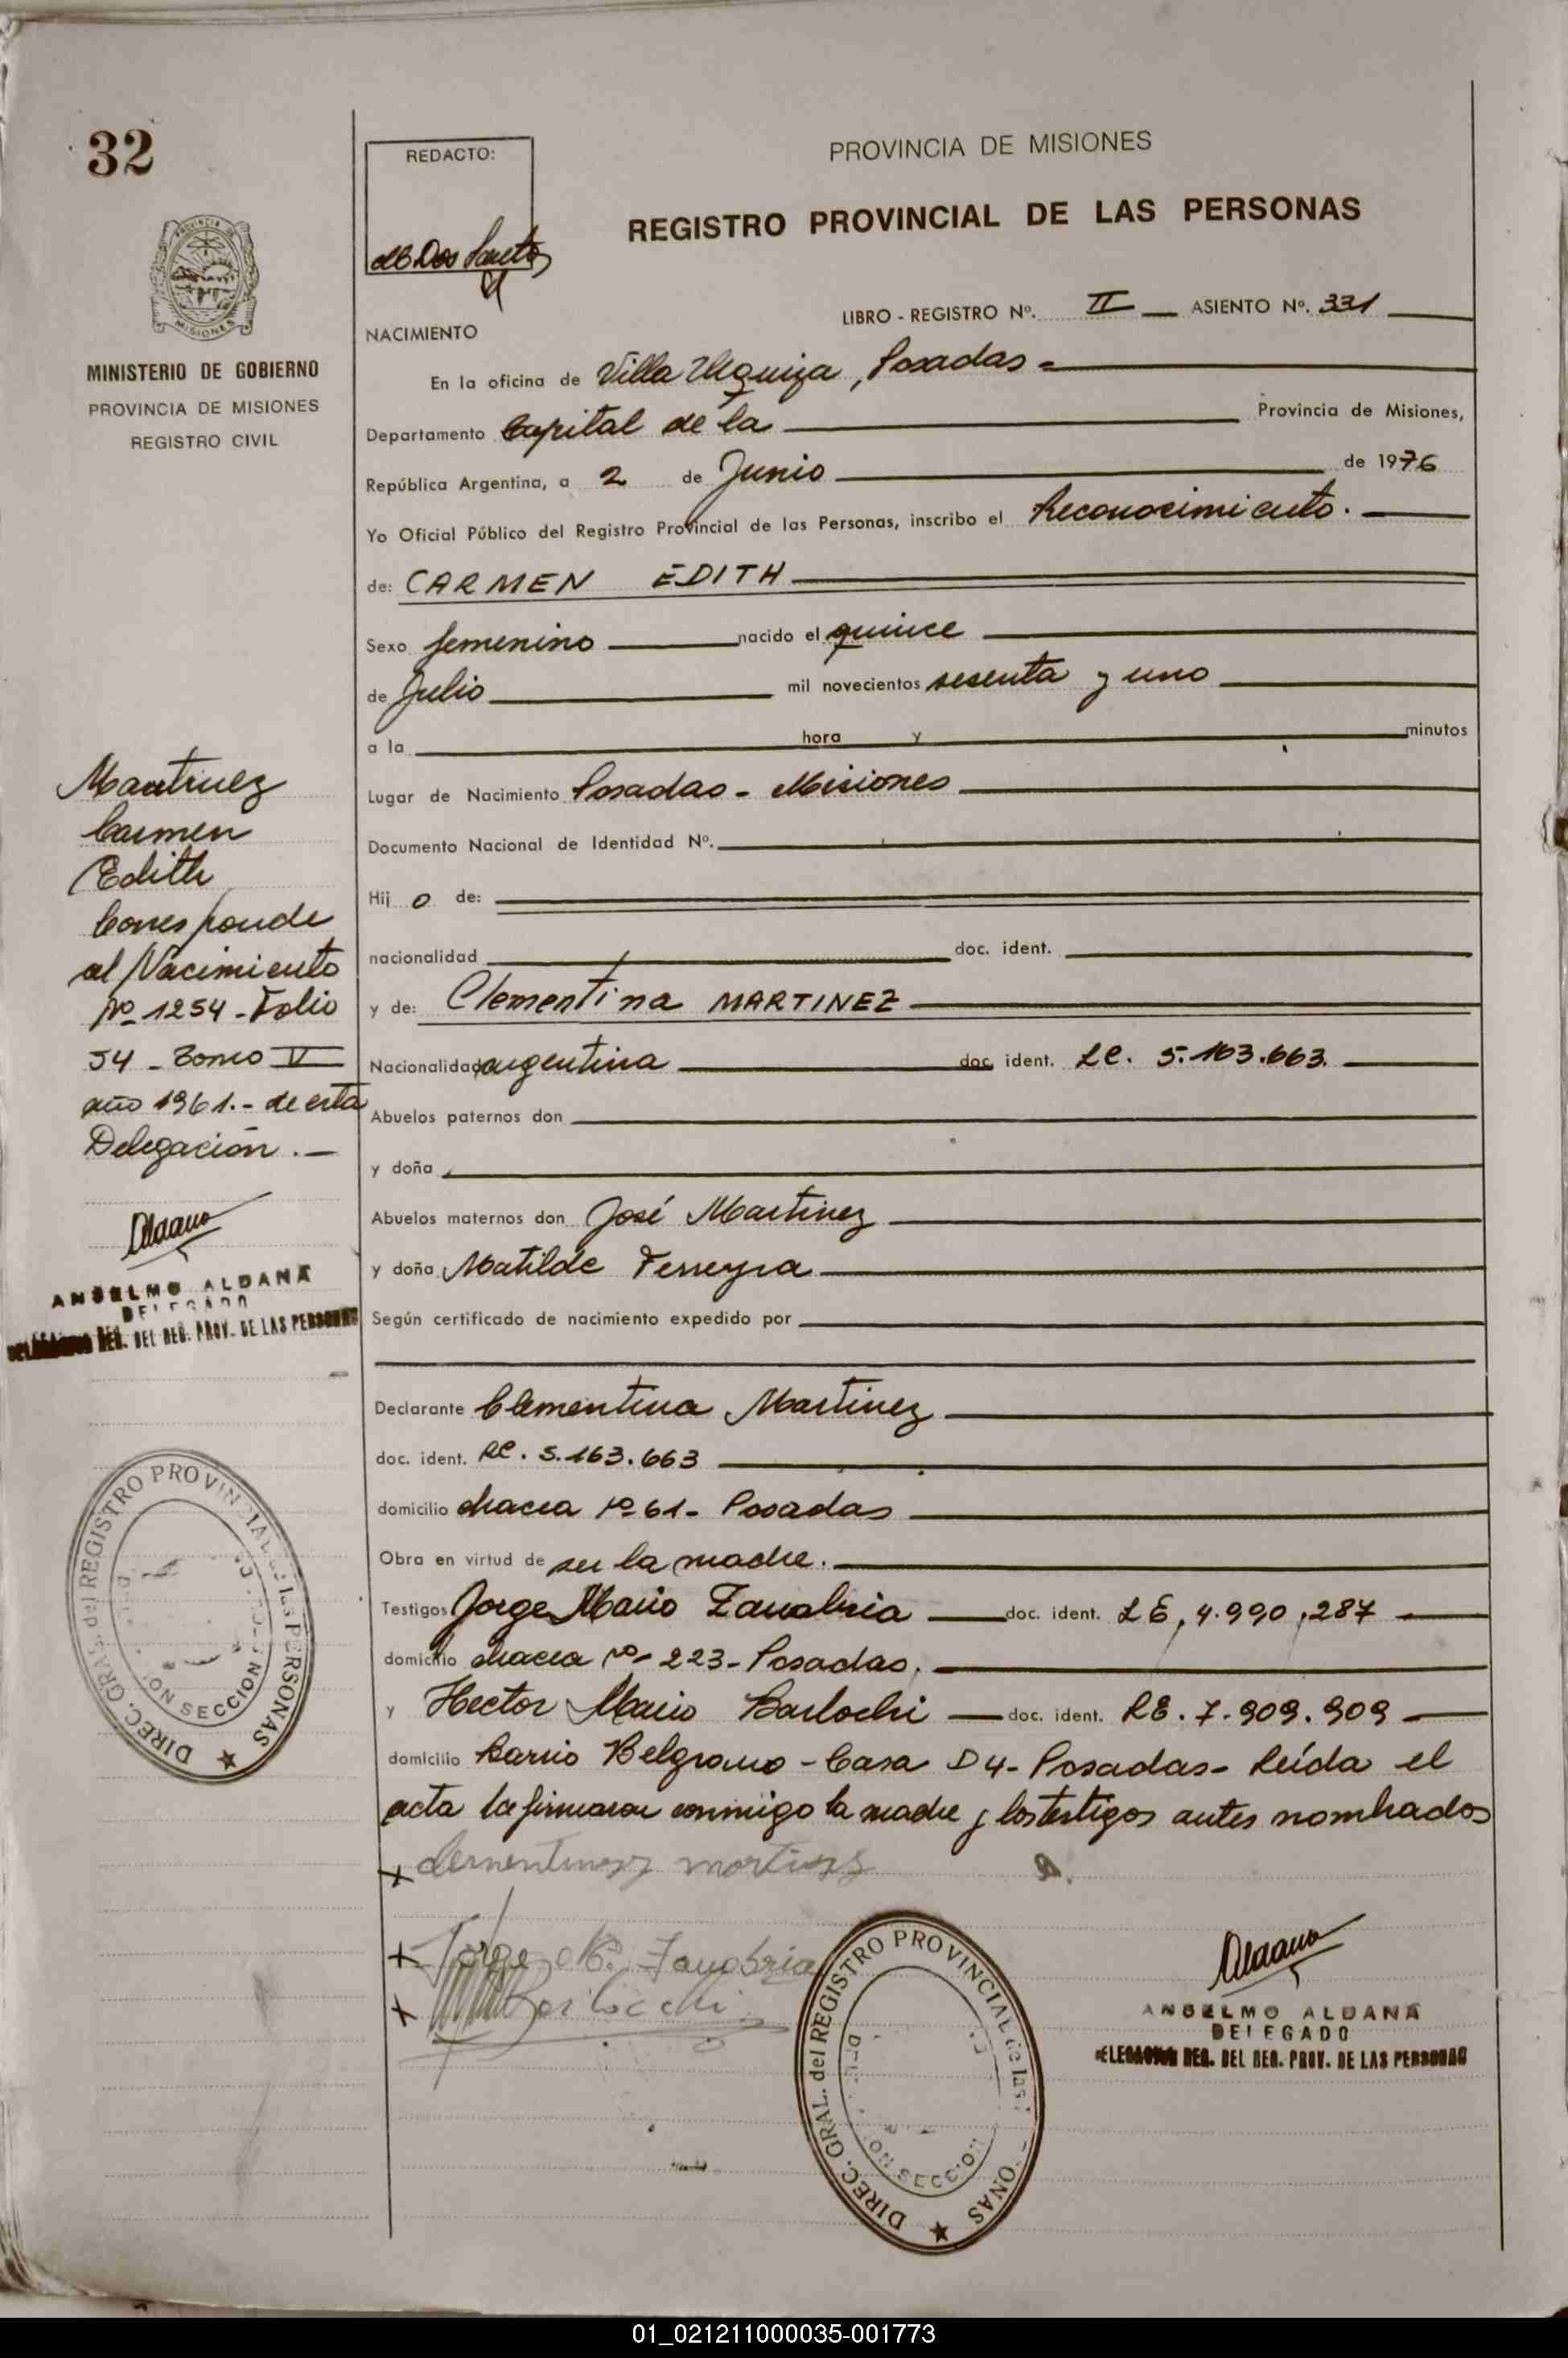 32
REDACTO:
PROVINCIA DE MISIONES
REGISTRO PROVINCIAL DE LAS PERSONAS
Dos Santos
PROVINCIA DE
MISIONES
MINISTERIO DE GOBIERNO
PROVINCIA DE MISIONES
REGISTRO CIVIL
LIBRO - REGISTRO Nº. II ASIENTO Nº. 331
NACIMIENTO
En la oficina de Villa Urquiza, Posadas -
Departamento Capital de la Provincia de Misiones,
República Argentina, a 2 de Junio de 1976
Yo Oficial Público del Registro Provincial de las Personas, inscribo el Reconocimiento.
de: CARMEN EDITH
Sexo femenino nacido el quince
de Julio mil novecientos sesenta y uno
a la hora y minutos
Lugar de Nacimiento Posadas - Misiones
Documento Nacional de Identidad Nº.
Hij o de:
nacionalidad doc. ident.
y de: Clementina MARTINEZ
Nacionalidad argentina doc. ident. LC. 5.163.663.
Abuelos paternos don
y doña
Abuelos maternos don José Martinez
y doña Matilde Ferreyra
Según certificado de nacimiento expedido por
Declarante Clementina Martinez
doc. ident. LC. 5.163.663
domicilio chacra Nº 61 - Posadas
Obra en virtud de ser la madre.
Testigos Jorge Mario Zanabria doc. ident. LE, 4.990,287
domicilio chacra Nº 223 - Posadas.
y Hector Mario Barlochi doc. ident. LE. 7.909.909
domicilio Barrio Belgrano - Casa D4 - Posadas - Leída el
acta la firmaron conmigo la madre y los testigos antes nombrados
Martinez
Carmen
Edith
Corresponde
al Nacimiento
Nº 1254 - Folio
54 - Tomo V
año 1961.- de esta
Delegación.-
Aldana
ANSELMO ALDANA
DELEGADO
REG. DEL REG. PROV. DE LAS PERSONAS
DIREC. GRAL. del REGISTRO PROVINCIAL de las PERSONAS
SECCION
x Clementina martines
x Jorge M. Zanabria
x Barlocchi
DIREC. GRAL. del REGISTRO PROVINCIAL de las
SECCION
Aldana
ANSELMO ALDANA
DELEGADO
DELEGACION REG. DEL REG. PROV. DE LAS PERSONAS
01_021211000035-001773